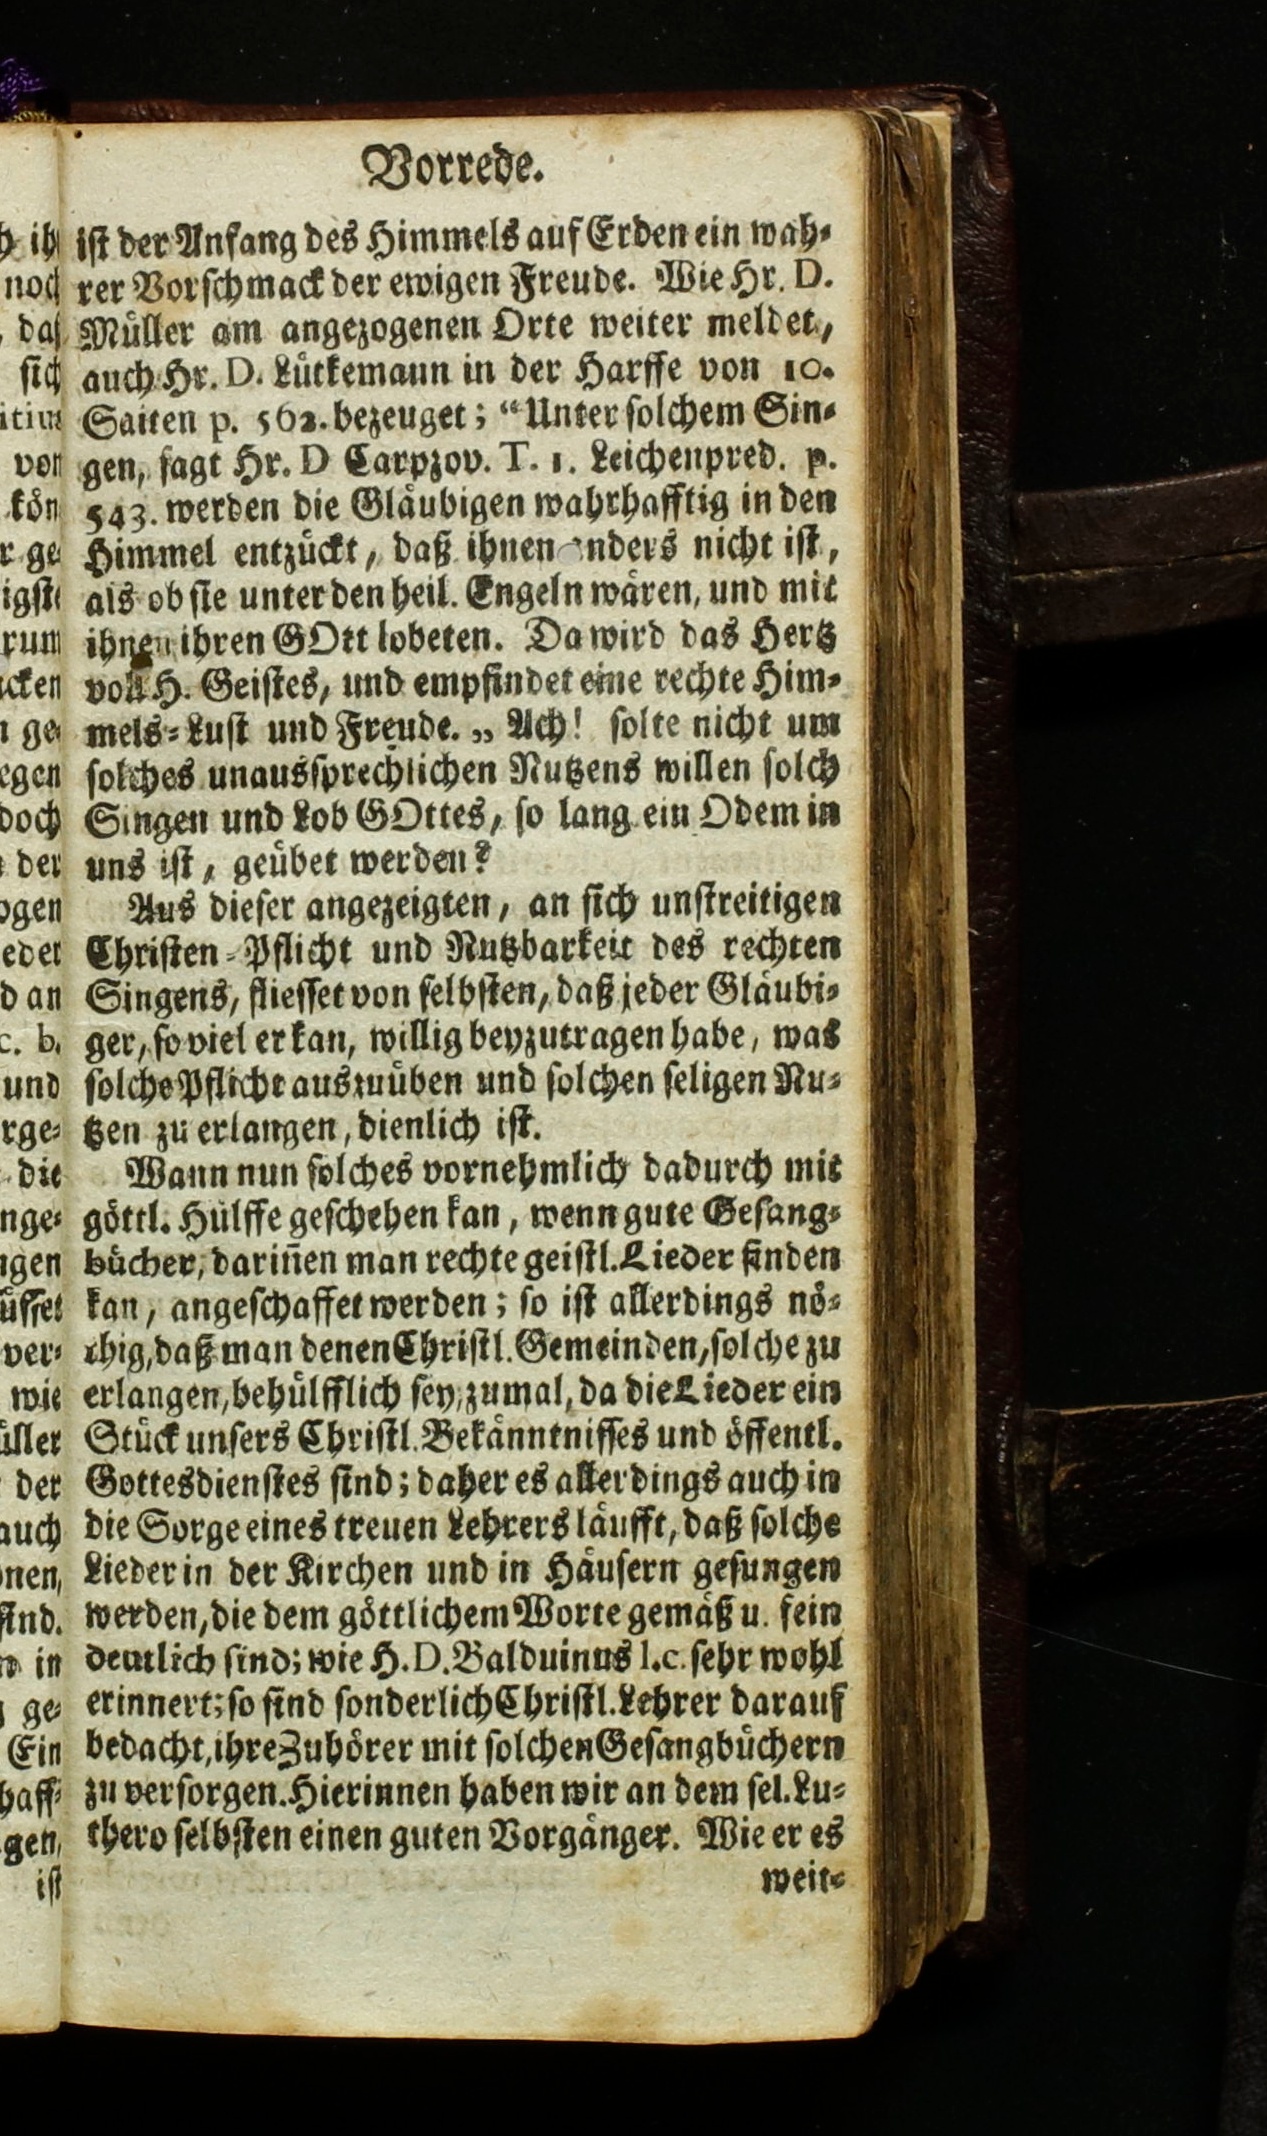 Vorrede.
ist der Anfang des Himmels auf Erden ein wah-
rer Vorschmack der ewigen Freude. Wie Hr. D.
Müller am angezogenen Orte weiter meldet,
auch Hr. D. Lütkemann in der Harffe von 10.
Saiten p. 562. bezeuget; "Unter solchem Sin-
gen, sagt Hr. D Carpzov. T. 1. Leichenpred. p.
543. werden die Gläubigen wahrhafftig in den
Himmel entzückt, daß ihnen anders nicht ist,
als ob sie unter den heil. Engeln wären, und mit
ihnen ihren GOtt lobeten. Da wird das Hertz
voll H. Geistes, und empfindet eine rechte Him-
mels-Lust und Freude.„ Ach! solte nicht um
solches unaussprechlichen Nutzens willen solch
Singen und Lob GOttes, so lang ein Odem in
uns ist, geübet werden?
Aus dieser angezeigten, an sich unstreitigen
Christen-Pflicht und Nutzbarkeit des rechten
Singens, fliesset von selbsten, daß jeder Gläubi-
ger, so viel er kan, willig beyzutragen habe, was
solche Pflicht auszuüben und solchen seligen Nu-
tzen zu erlangen, dienlich ist.
Wann nun solches vornehmlich dadurch mit
göttl. Hülffe geschehen kan, wenn gute Gesang-
bücher, dariñen man rechte geistl. Lieder finden
kan, angeschaffet werden; so ist allerdings nö-
thig, daß man denen Christl. Gemeinden, solche zu
erlangen, behülfflich sey, zumal, da die Lieder ein
Stück unsers Christl. Bekänntnisses und öffentl.
Gottesdienstes sind; daher es allerdings auch in
die Sorge eines treuen Lehrers läufft, daß solche
Lieder in der Kirchen und in Häusern gesungen
werden, die dem göttlichem Worte gemäß u. fein
deutlich sind; wie H. D. Balduinus l.c. sehr wohl
erinnert; so sind sonderlich Christl. Lehrer darauf
bedacht, ihre Zuhörer mit solchen Gesangbüchern
zu versorgen. Hierinnen haben wir an dem sel. Lu-
thero selbsten einen guten Vorgänger. Wie er es
weit-